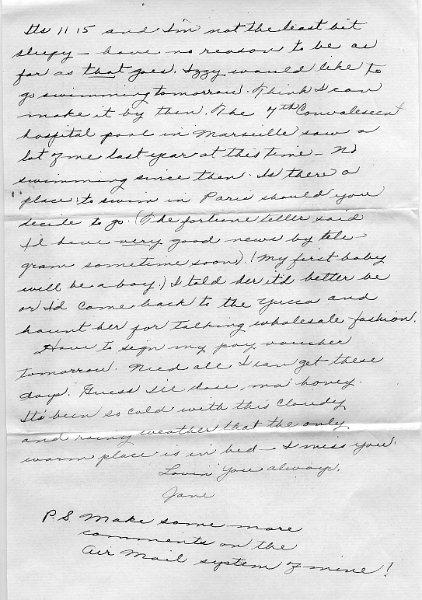 Its 11 15 and I'm not the least bit
sleepy - have no reason to be as
far as that goes. Izzy would like to
go swimming tomorrow. Think I can
make it by then. The 7th Convalescent
hospital pool in Marseille saw a
lot of me last year at this time - No
swimming since then. Is there a
place to swim in Paris should you
decide to go. (The fortune teller said
I'd have very good news by tele-
gram sometime soon) (My first baby
will be a boy.) I told her it'd better be
or I'd come back to the Yucca and
haunt her for talking wholesale fashion.
Have to sign my pay voucher
tomorrow. Need all I can get these
days. Guess I'll close, ma honey.
It's been so cold with this cloudy
and rainy weather that the only
warm place is in bed - I miss you.
Lovin you always.
Jane
P.S. Make some more
comments on the
Air Mail system of mine!